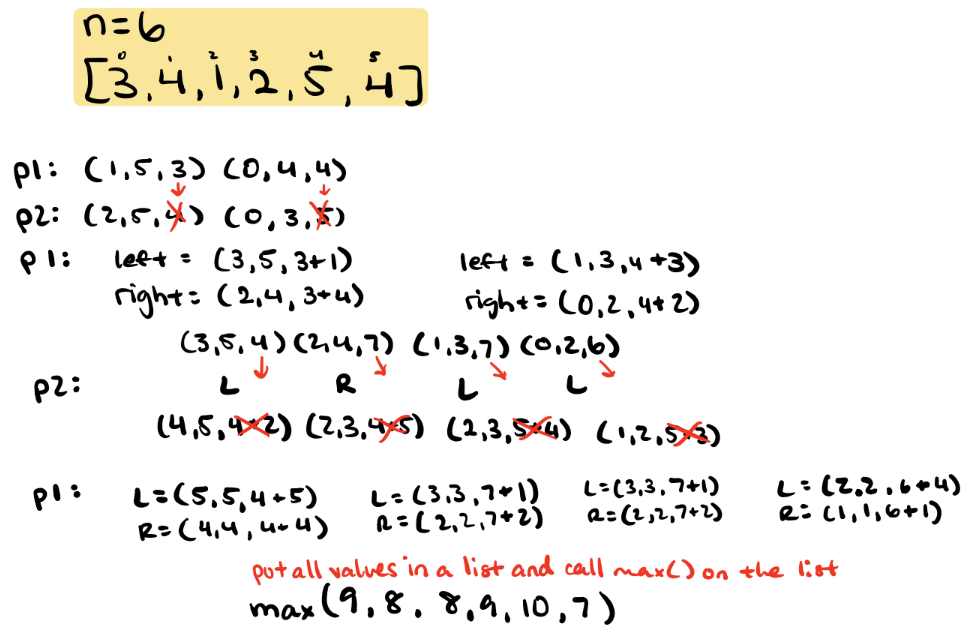 n=6
0 1 2 3 4 5
[3,4,1,2,5,4]
p1: (1,5,3) (0,4,4)
p2: (2,5,4) (0,3,5)
p1: left = (3,5,3+1) left = (1,3,4+3)
right= (2,4,3+4) right= (0,2,4+2)
(3,5,4) (2,4,7) (1,3,7) (0,2,6)
p2: L R L L
(4,5,4+2) (2,3,4+5) (2,3,5+4) (1,2,5+3)
p1: L=(5,5,4+5) L=(3,3,7+1) L=(3,3,7+1) L=(2,2,6+4)
R=(4,4,4+4) R=(2,2,7+2) R=(2,2,7+2) R=(1,1,6+1)
put all values in a list and call max() on the list
max(9,8,8,9,10,7)